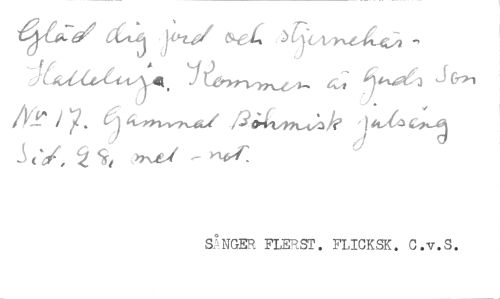 Gläd dig jord och stjernehär -
Halleluja. Kommen är Guds Son
No 17. Gammal Böhmisk julsång
Sid. 28, mel - not.
SÅNGER FLERST. FLICKSK. C.v.S.